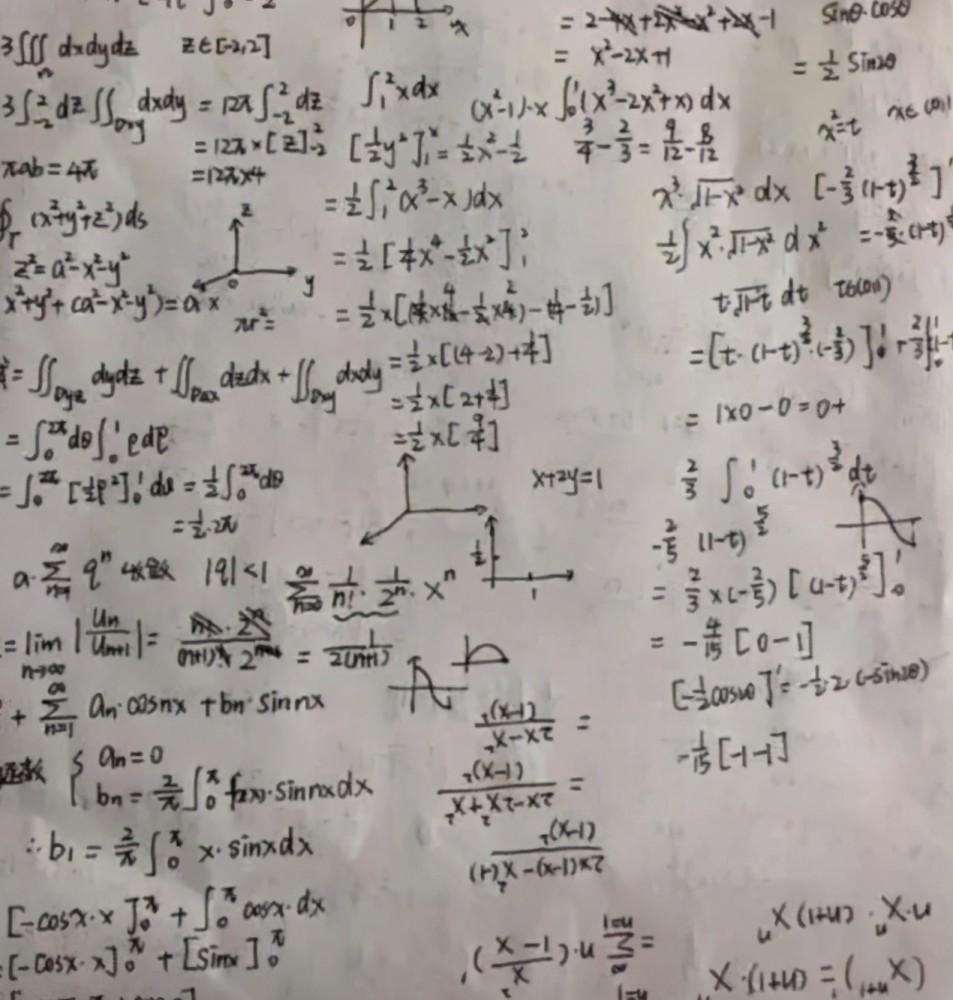 3∭ dxdydz z∈[-2,2]
3∫₋₂² dz ∬_Dxy dxdy = 12π∫₋₂² dz
= 12π×[z]₋₂²
πab = 4π
= 12π×4
∮_Γ (x²+y²+z²)ds
z² = a²-x²-y²
x²+y²+(a²-x²-y²) = a
z
y
x
0
πr² =
= ∬_Dyz dydz + ∬_Dzx dzdx + ∬_Dxy dxdy
= ∫₀^2π dθ ∫₀¹ ρdρ
= ∫₀^2π [½ρ²]₀¹ dθ = ½∫₀^2π dθ
= ½·2π
a·∑_{n=1}^∞ qⁿ 收敛 |q|<1
∑_{n=0}^∞ 1/n! · 1/2ⁿ · xⁿ
= lim_{n→∞} |Un/Un+1| = n!·2ⁿ/(n+1)!·2ⁿ⁺¹ = 1/2(n+1)
+ ∑_{n=1}^∞ an·cosnx + bn·sinnx
函数 { an = 0
bn = 2/π ∫₀^π f(x)·sinnxdx
∴b₁ = 2/π ∫₀^π x·sinxdx
[-cosx·x]₀^π + ∫₀^π cosx·dx
[-cosx·x]₀^π + [sinx]₀^π
0 1 2 x
∫₁² xdx
[½y²]₁ˣ = ½x²-½
= ½∫₁²(x³-x)dx
= ½[¼x⁴-½x²]₁²
= ½×[(4-2)+¼]
= ½×[2+¼]
= ½×[9/4]
x+2y=1
½
1
= 2-4x+2x²-x²+2x-1
= x²-2x+1
(x²-1)·x ∫₀¹(x³-2x²+x)dx
3/4 - 2/3 = 9/12 - 8/12
sinθ·cosθ
= ½ sin2θ
x²=t x∈(0,1)
x³·√1-x² dx [-⅔(1-t)^3/2]'
½∫x²·√1-x² dx²
t√1-t dt t∈(0,1)
= [t·(1-t)^3/2·(-⅔)]₀¹ + ⅔∫₀¹
= 1×0-0=0+
⅔ ∫₀¹ (1-t)^3/2 dt
-2/5 (1-t)^5/2
= ⅔×(-2/5)[(1-t)^5/2]₀¹
= -4/15 [0-1]
[-½cos2θ]' = -½·2·(-sin2θ)
-1/15[-1-1]
= 2x-x²/(1-x)²
= 2x-2x²+x²/(1-x)²
2x(1-x)-x²(-1)/(1-x)²
= ∑_{n=1}^∞ n·(x²/1-x)'
n·xⁿ·(n+1)xⁿ
(xⁿ⁺¹)' = (n+1)·x